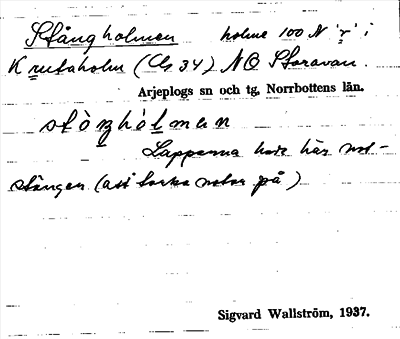 Stångholmen holme 100 N 'r' i
Krutaholm (Ch 34) NO Storavan.
Arjeplogs sn och tg, Norrbottens län.
stòŋhòlmen
Lapparna har här not-
stänger (att torka noter på)
Sigvard Wallström, 1937.